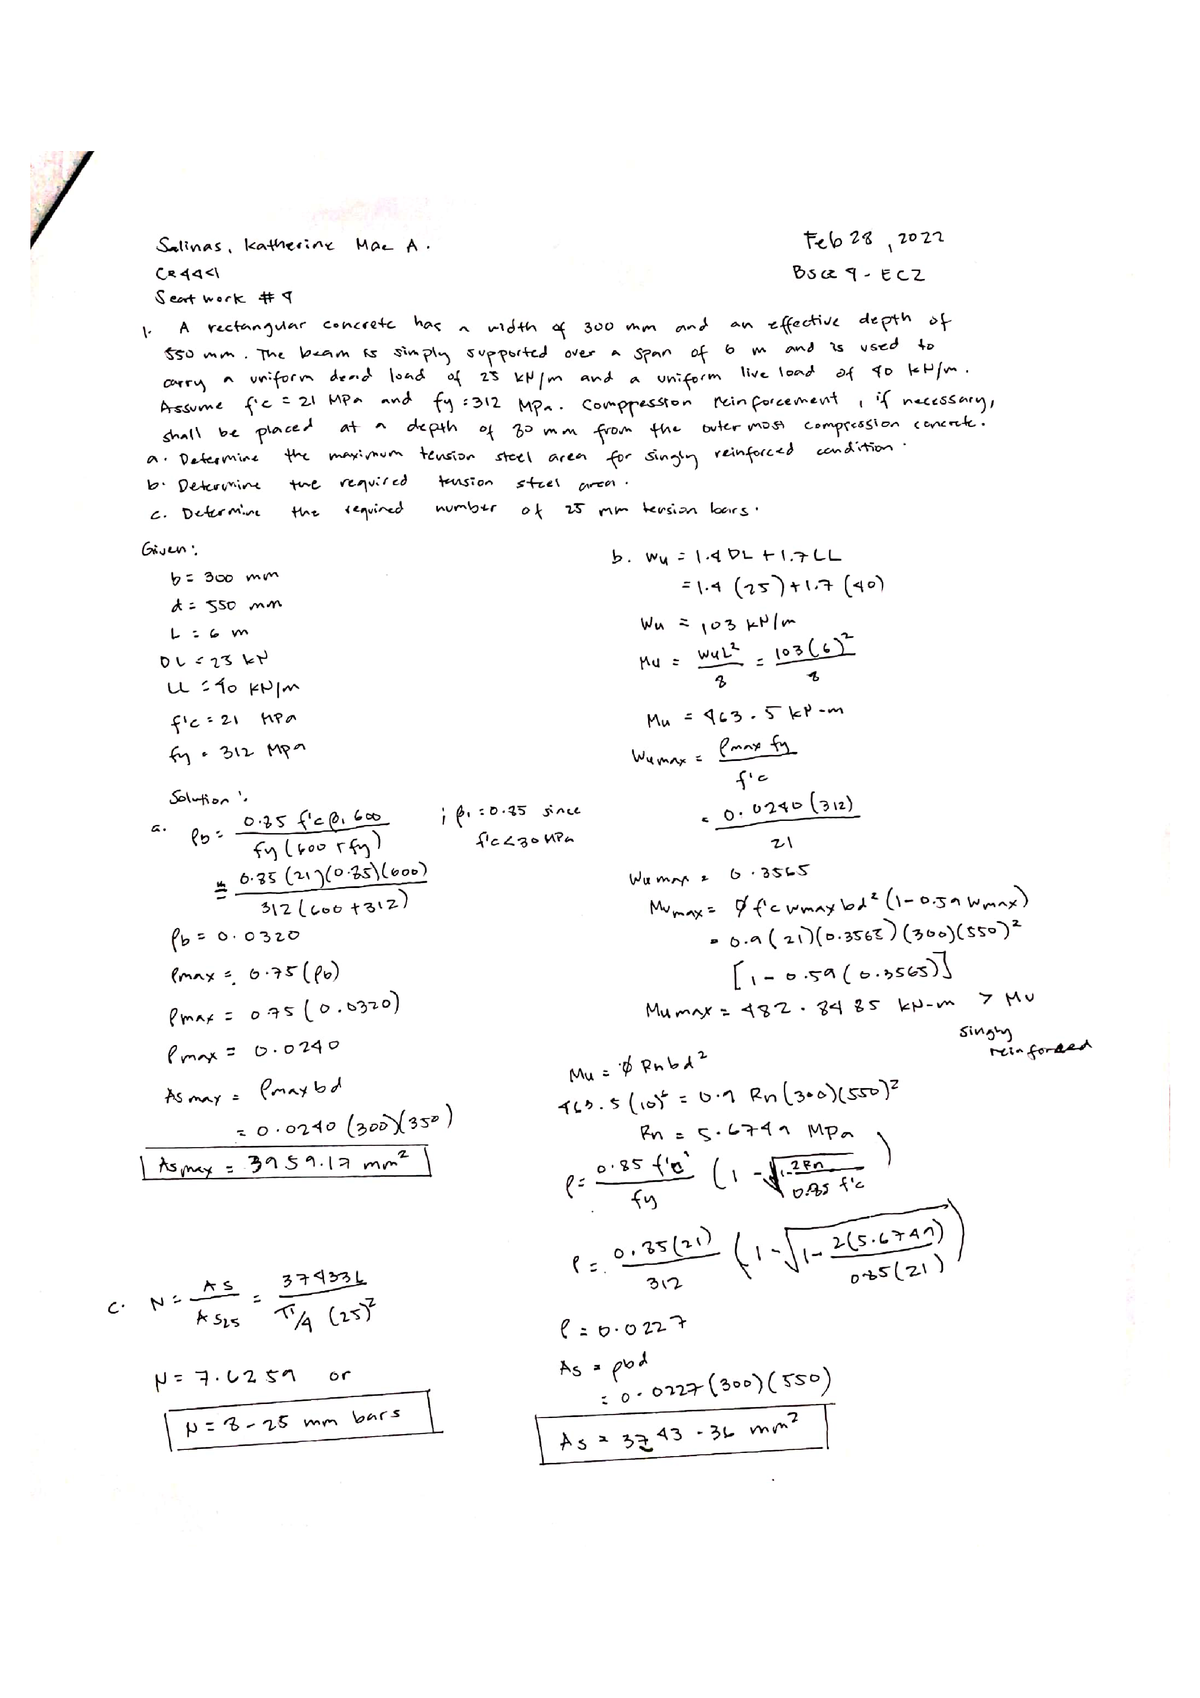 Salinas, Katherine Mae A.
Feb 28, 2022
BSCE 4 - EC2
Seat work # 4
1. A rectangular concrete has a width of 300 mm and an effective depth of
550 mm. The beam is simply supported over a span of 6 m and is used to
carry a uniform dead load of 25 kN/m and a uniform live load of 40 kN/m.
Assume f'c = 21 MPa and fy = 312 MPa. Comppession reinforcement, if necessary,
shall be placed at a depth of 80 mm from the outer most compression concrete.
a. Determine the maximum tension steel area for singly reinforced condition.
b. Determine the required tension steel area.
c. Determine the required number of 25 mm tension bars.
Given:
b = 300 mm
d = 550 mm
L = 6 m
DL = 25 kN
LL = 40 kN/m
f'c = 21 MPa
fy = 312 MPa
Solution:
a. ρb = 0.85 f'c β1 600 / fy (600 + fy) ; β1 = 0.85 since f'c < 30 MPa
= 0.85 (21)(0.85)(600) / 312 (600 + 312)
ρb = 0.0320
ρmax = 0.75 (ρb)
ρmax = 0.75 (0.0320)
ρmax = 0.0240
As max = ρmax bd
= 0.0240 (300)(550)
As max = 3959.17 mm²
b. Wu = 1.4 DL + 1.7 LL
= 1.4 (25) + 1.7 (40)
Wu = 103 kN/m
Mu = WuL² / 8 = 103 (6)² / 8
Mu = 463.5 kN-m
Wu max = ρmax fy / f'c
= 0.0240 (312) / 21
Wu max = 0.3565
Mu max = φ f'c wmax bd² (1 - 0.59 wmax)
= 0.9 (21)(0.3565)(300)(550)²
[1 - 0.59 (0.3565)]
Mu max = 482.8485 kN-m > Mu
singly
reinforced
Mu = φ Rn bd²
463.5 (10)⁶ = 0.9 Rn (300)(550)²
Rn = 5.6749 MPa
ρ = 0.85 f'c / fy (1 - √1 - 2Rn / 0.85 f'c)
ρ = 0.85 (21) / 312 (1 - √1 - 2(5.6749) / 0.85 (21))
ρ = 0.0227
As = ρbd
= 0.0227 (300)(550)
As = 3743.36 mm²
c. N = As / As25 = 374336 / π/4 (25)²
N = 7.6259 or
N = 8 - 25 mm bars